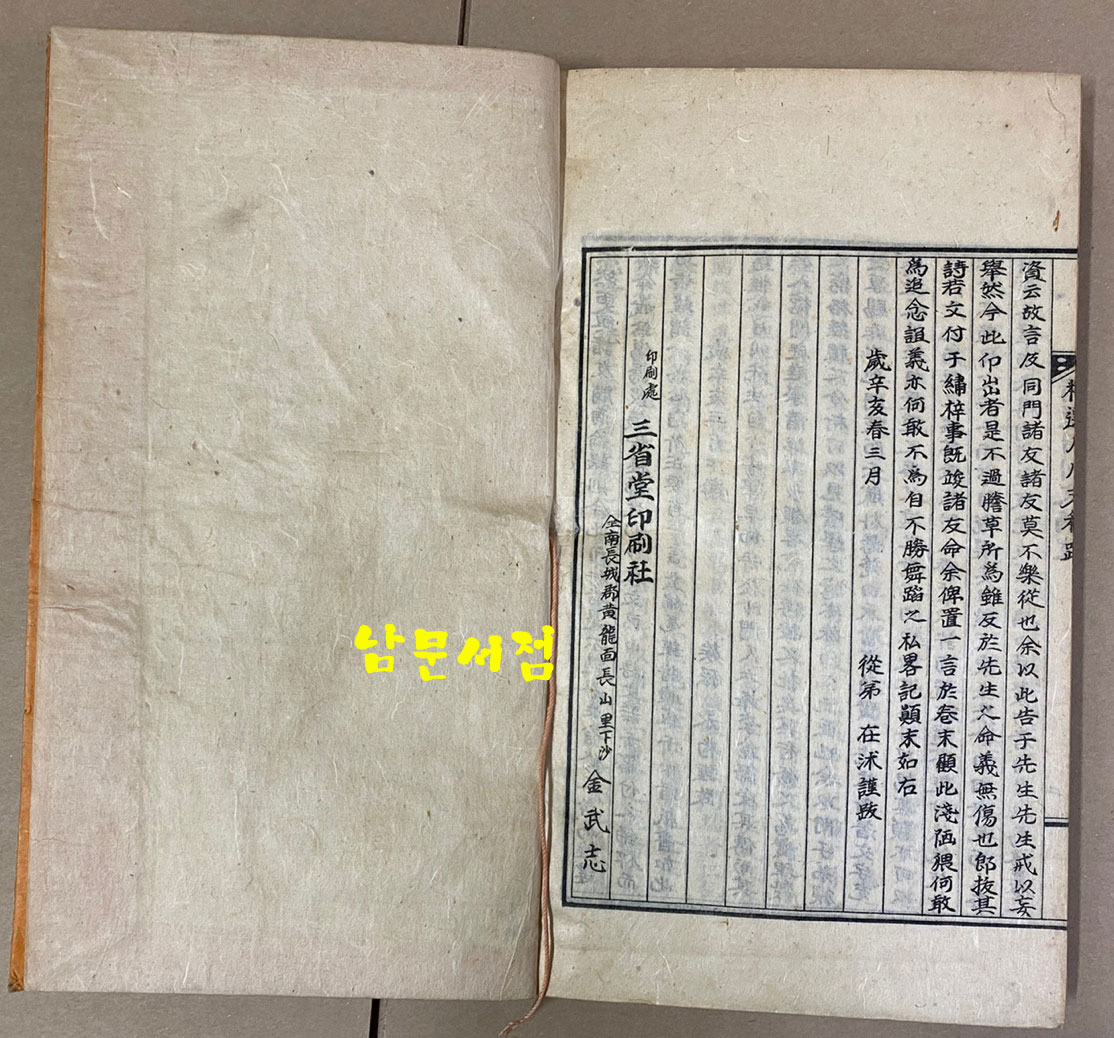 資云故言及同門諸友諸友莫不樂從也余以此告于先生先生戒以妄
擧然今此印出者是不過謄草所爲雖反於先生之命義無傷也郎抜其
詩若文付于繡梓事既竣諸友命余俾置一言於卷末顧此淺陋猥何敢
爲追念誼義亦何敢不爲自不勝舞蹈之私畧記顚末如右
歲辛亥春三月 從弟 在洙謹跋
印刷處 三省堂印刷社
全南長城郡黃龍面長山里下沙 金武志
남문서점